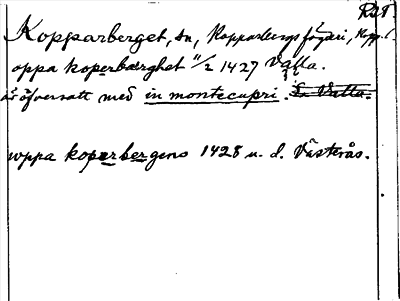 RAP.
Kopparberget, sn, Kopparbergs fögderi, Kopp. l.
oppa koperbærghet 11/2 1427 Vafla.
är öfversatt med in montecupri.
uppa koperbergens 1428 u. d. Västerås.